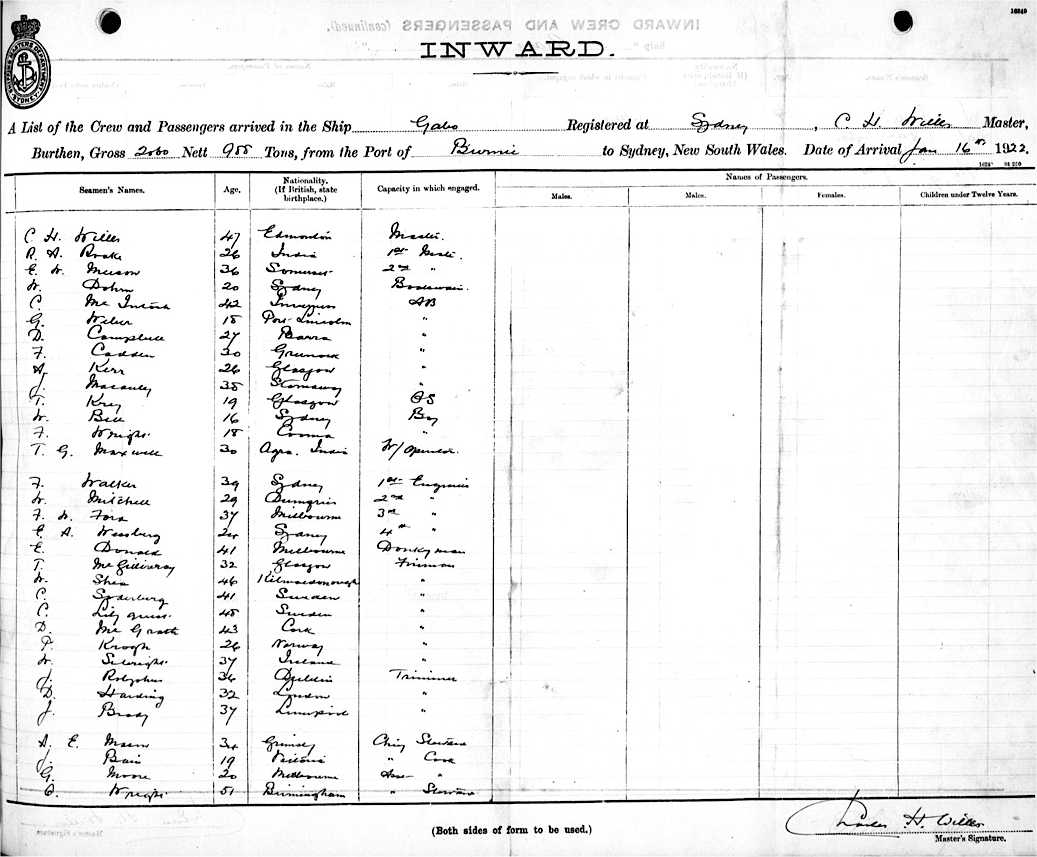 16249
INWARD.
A List of the Crew and Passengers arrived in the Ship Gabo Registered at Sydney, C. H. Willes Master,
Burthen, Gross 2060 Nett 955 Tons, from the Port of Burnie to Sydney, New South Wales. Date of Arrival Jan 16th 1922.
Names of Passengers.
Seamen's Names. Age. Nationality. (If British, state birthplace.) Capacity in which engaged. Males. Males. Females. Children under Twelve Years.
C H. Willes 47 Edmonton Master.
R. A. 26 India 1st Mate.
E. W. 36 Somerset 2nd "
W. Dohm 20 Sydney Boatswain.
C. McIntosh 42 AB
G. Weber 18 Port Lincoln "
D. Campbell 27 Barra "
F. Cadden 30 Greenock "
A. Kerr 26 Glasgow "
J. Macauley 35 Stornaway "
T. 19 Glasgow OS
W. Bell 16 Sydney Boy
F. Wright. 18 Cooma "
T. G. Maxwell 30 Agra. India W/Operator.
F. Walker 39 Sydney 1st Engineer
W. Mitchell 29 2nd "
F. W. Ford 37 Melbourne 3rd "
E. A. 24 Sydney 4th "
E. Donald 41 Melbourne Donkyman
T. McGillivray 32 Glasgow Fireman
W. Shea 46 "
C. Soderberg 41 Sweden "
C. 45 Sweden "
D. McGrath 43 Cork "
P. Krogh 26 Norway "
W. 37 Ireland "
J. 36 Dublin Trimmer
D. Harding 32 London "
J. Brady 37 Liverpool "
A. E. 34 Grimsby Chief Steward
J. Bain 19 Victoria " Cook
G. Moore 20 Melbourne Asst "
Wright 51 Birmingham " Steward
(Both sides of form to be used.)
Charles H. Willes
Master's Signature.